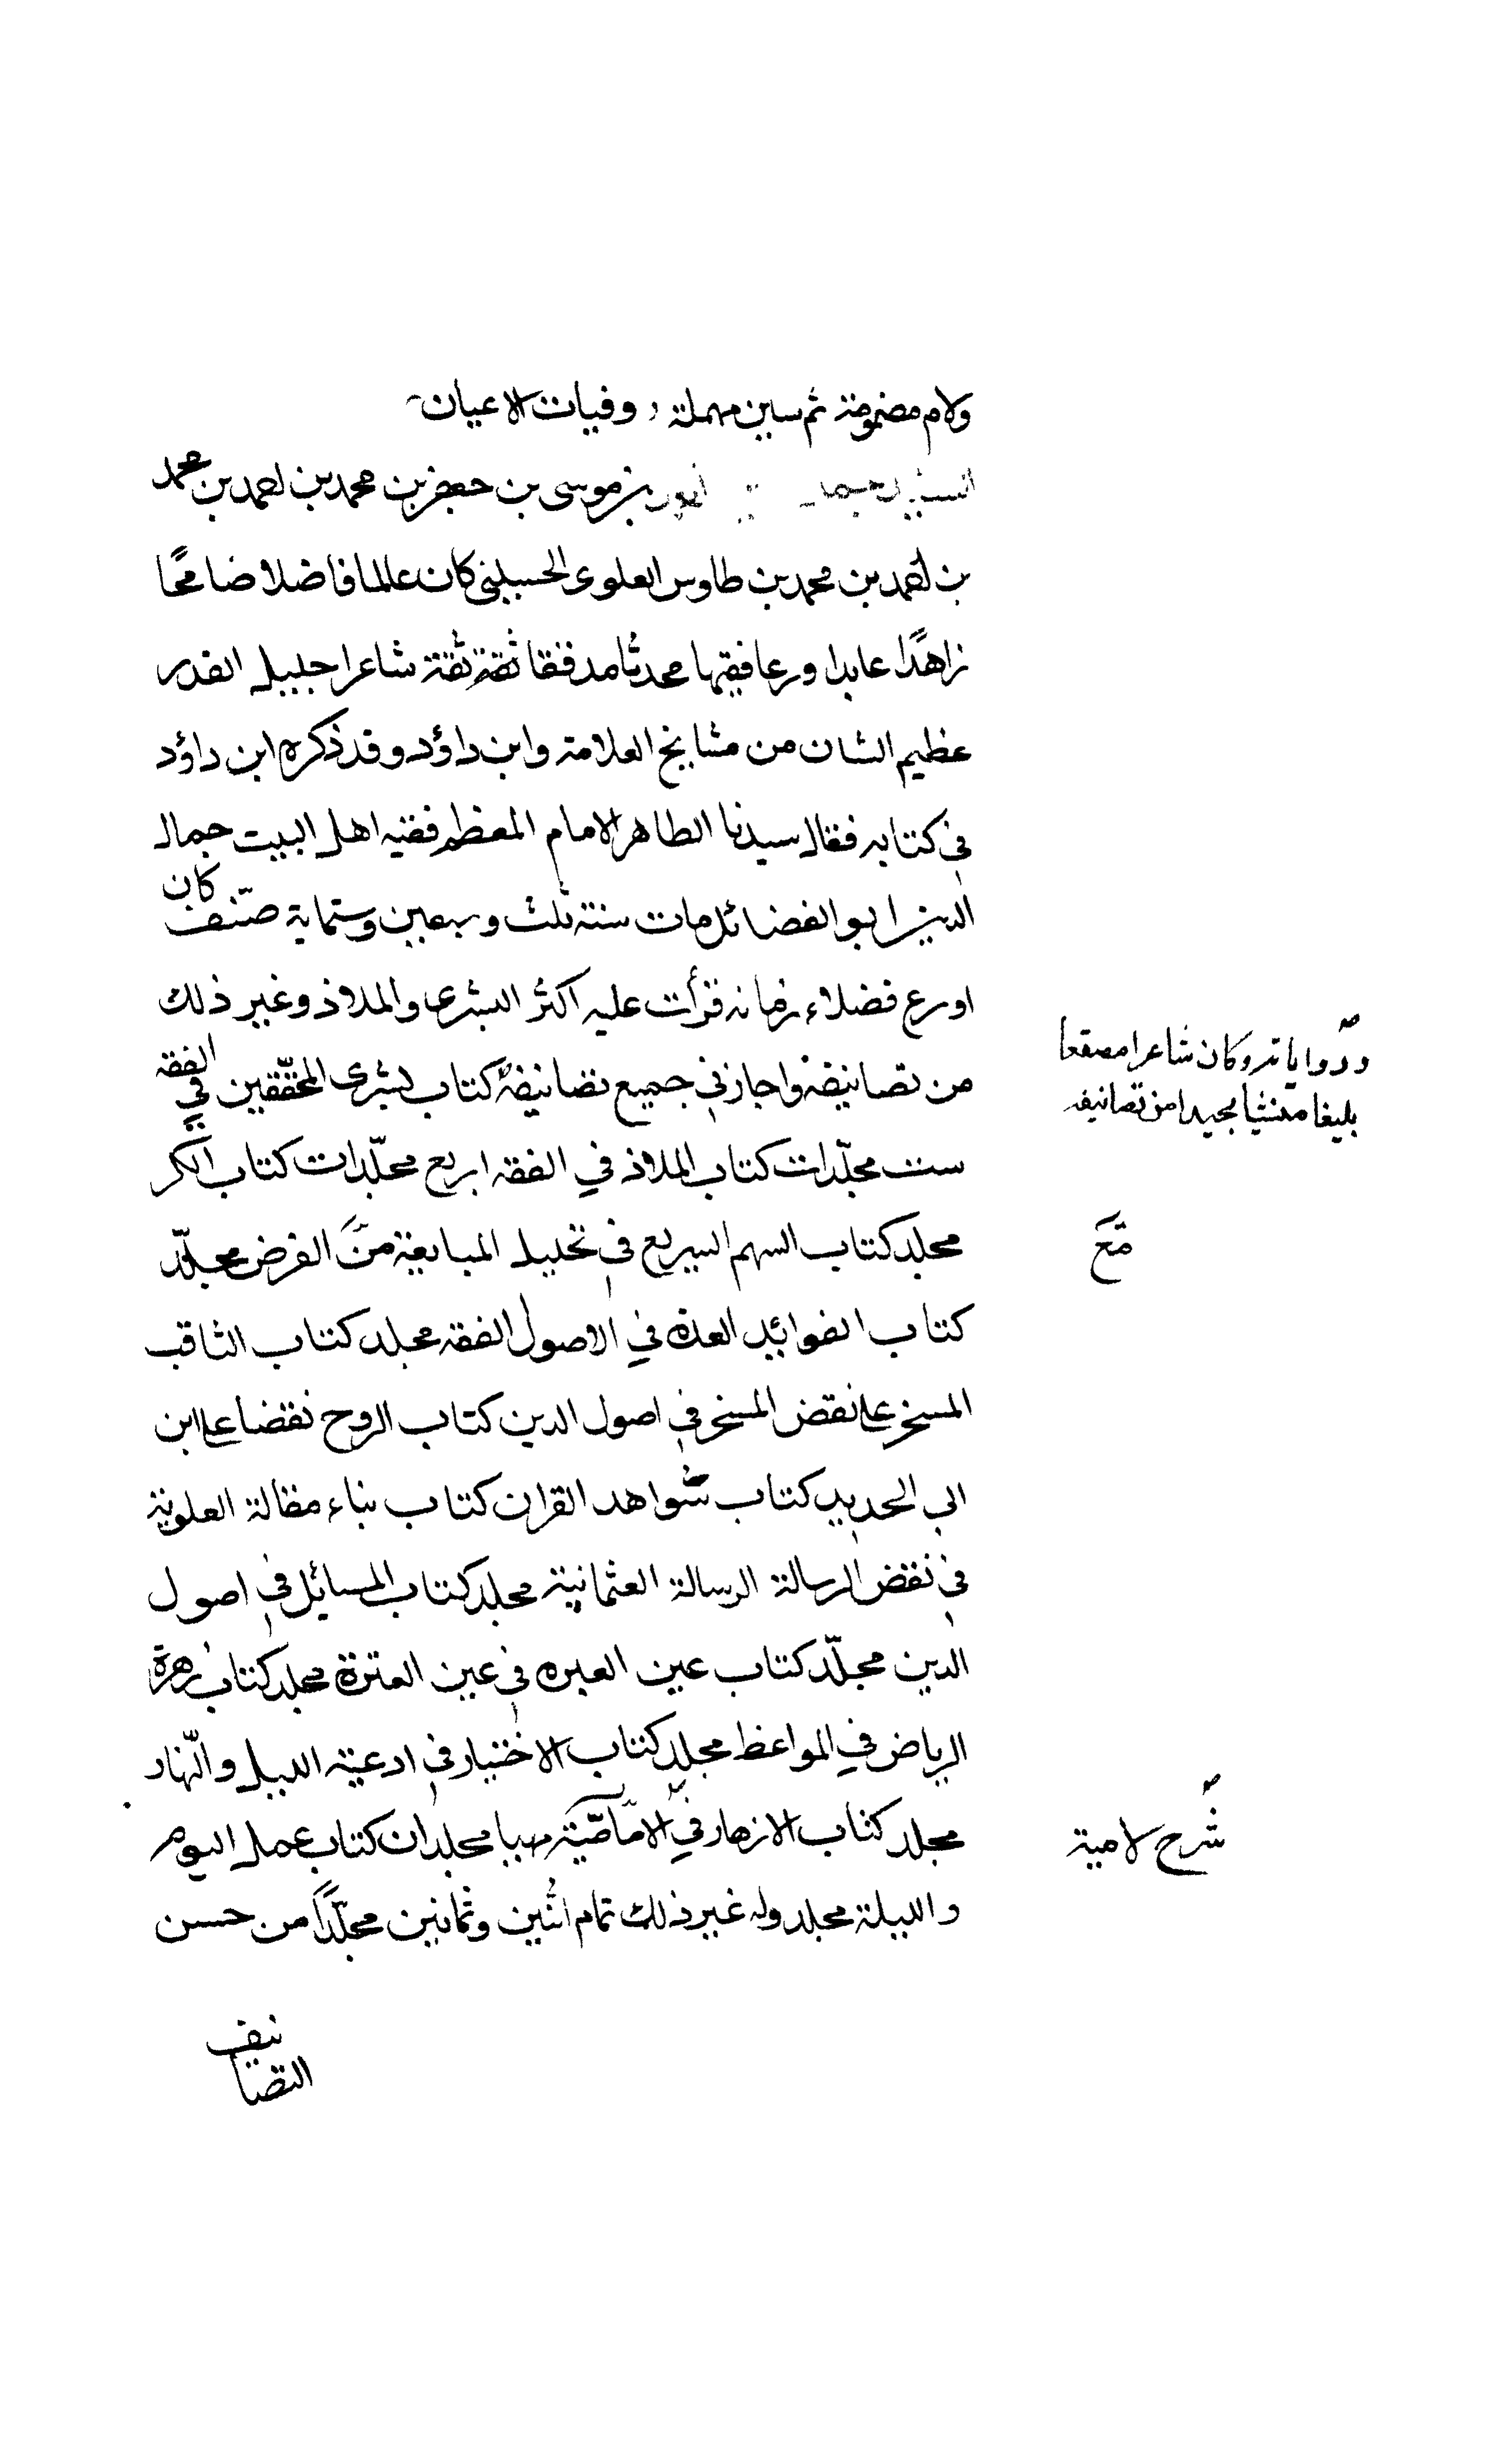 ولام مضمومة ثم سين مهملة وفيات الاعيان
بن موسى بن جعفر بن محمد بن احمد بن محمد
بن احمد بن محمد بن طاوس العلوى الحسينى كان عالما فاضلا صالحًا
زاهدًا عابدا ورعا فقيها محدثا مدققا ثقة ثقة شاعرا جليل القدر
عظيم الشان من مشايخ العلامة وابن داؤد وقد ذكره ابن داؤد
في كتابه فقال سيدنا الطاهر الامام المعظم فقيه اهل البيت جمال
الدين ابو الفضائل مات سنة ثلث وسبعين وستماية صنّف كان
اورع فضلاء زمانه قرأت عليه اكثر البشرى والملاذ وغير ذلك
من تصانيفه واجازني جميع تصانيفه كتاب بشرى المحقّقين في الفقه
وروّاياته وكان شاعرا مصقعا
بليغا منشيا مجيدا من تصانيفه
ست مجلّدات كتاب الملاذ في الفقه اربع مجلّدات كتاب الكر
مجلد كتاب السهم السريع في تحليل المبايعة من القرض مجلّد
مَعَ
كتاب الفوائد العده في الاصول الفقه مجلد كتاب الثاقب
المسخر على نقض المسخر في اصول الدين كتاب الروح نقضا على ابن
ابى الحديد كتاب شواهد القران كتاب بناء مقالة العلوية
في نقض الرسالة الرسالة العثمانية مجلد كتاب المسائل في اصول
الدين مجلّد كتاب عين العبره في عين العترة مجلد كتاب زهرة
الرياض في المواعظ مجلد كتاب الاختيار في ادعية الليل والنّهار
مجلد كتاب الازهار في مهيا مجلدان كتاب عمل اليوم
شرح لامية
والليلة مجلد وله غير ذلك تمام اثنين وثمانين مجلّدًا من حسن
التصانيف